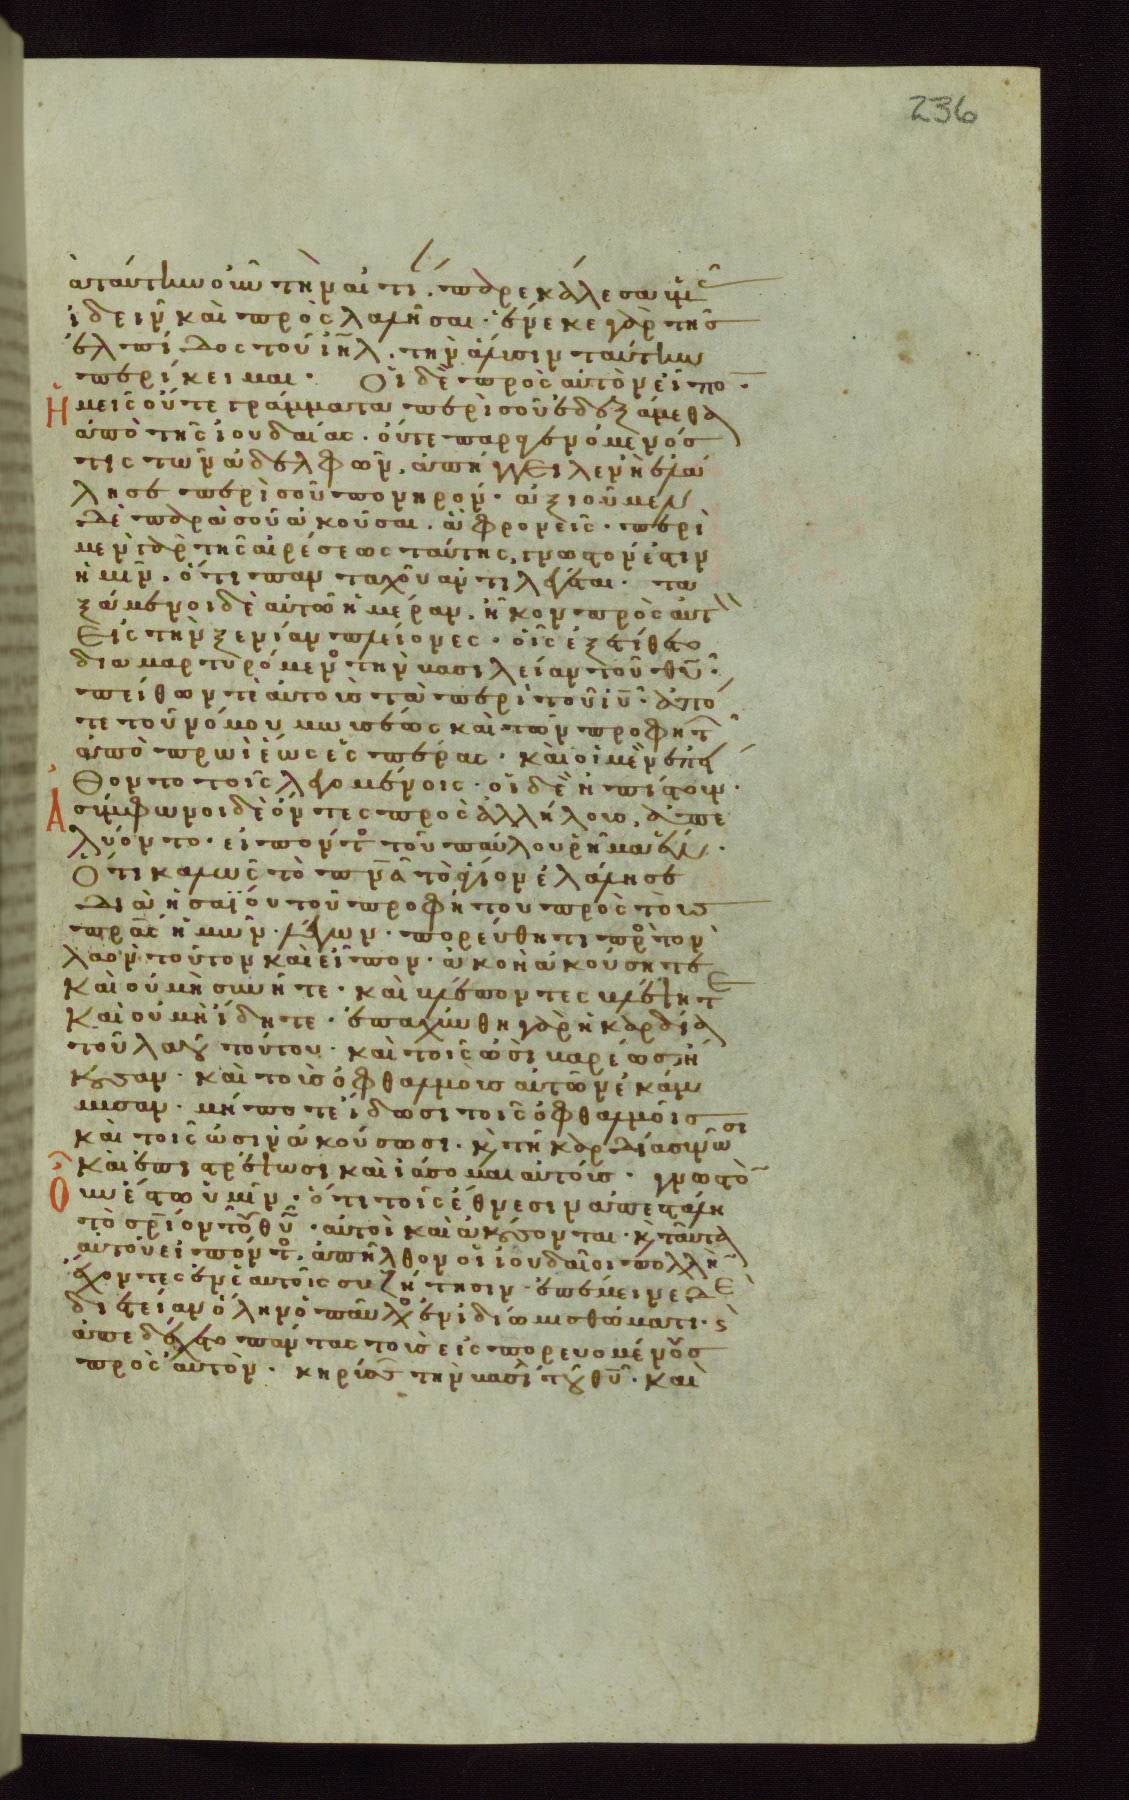 236
ὰ ταύτην οὖν τὴν αἰτί. παρεκάλεσα ὑμᾶς
ἰδεῖν καὶ προσλαλῆσαι. ἕνεκε γὰρ τῆς
ἐλπίδος τοῦ ιηλ. τὴν ἅλυσιν ταύτην
περίκειμαι. Οἱ δὲ πρὸς αὐτὸν εἶπο.
Ἡμεῖς οὔτε γράμματα περὶ σοῦ ἐδεξάμεθα
ἀπὸ τῆς ἰουδαίας. οὔτε παραγενόμενός
τις τῶν ἀδελφῶν. ἀπήγγειλεν ἢ ἐλά
λησε περὶ σοῦ πονηρόν. ἀξιοῦμεν
δὲ παρὰ σοῦ ἀκοῦσαι. ἃ φρονεῖς. περὶ
μὲν γὰρ τῆς αἱρέσεως ταύτης, γνωστόν ἐστιν
ἡμῖν. ὅτι πανταχοῦ ἀντιλέγεται. τα
ξάμενοι δὲ αὐτῶ ἡμέραν. ἧκον πρὸς αὐτ
Εἰς τὴν ξενίαν πλείονες. οἷς ἐξετίθετο
διαμαρτυρόμεν τὴν βασιλείαν τοῦ θυ.
πείθων τὲ αὐτοὺς τὰ περὶ τοῦ ιυ. ἀπό
τε τοῦ νόμου μωυσέως καὶ τῶν προφητ
ἀπὸ πρωῒ ἕως ἑσπέρας. καὶ οἱ μὲν ἐπεί
θοντο τοῖς λεγομένοις. οἱ δὲ ἠπίστουν.
Ἀσύμφωνοι δὲ ὄντες πρὸς ἀλλήλους, ἀπε
λύοντο. εἰπόντ τοῦ παύλου ῥῆμα ἕν.
Ὅτι καλῶς τὸ πνα τὸ ἅγιον ἐλάλησε
διὰ ἡσαΐου τοῦ προφήτου πρὸς τοὺς
πρας ἡμῶν. λέγων. πορεύθητι πρ τὸν
λαὸν τοῦτον καὶ εἶπον. ἀκοῆ ἀκούσητε
καὶ οὐ μὴ συνῆτε. καὶ βλέποντες βλέψητε
καὶ οὐ μὴ ἴδητε. ἐπαχύνθη γὰρ ἡ καρδία
τοῦ λαοῦ τούτου. καὶ τοῖς ὠσὶ βαρέως ἤ
κουσαν. καὶ τοὺς ὀφθαλμοὺς αὐτῶν ἐκάμ
μυσαν. μήποτε ἴδωσι τοῖς ὀφθαλμοῖς
καὶ τοῖς ὠσὶν ἀκούσωσι. κ τῆ καρδία συνῶσι
καὶ ἐπιστρέψωσι καὶ ἰάσομαι αὐτούς. γνωστὸ
οὖν ἔστω ὑμῖν. ὅτι τοῖς ἔθνεσιν ἀπεστάλη
τὸ σριον τοῦ θυ. αὐτοὶ καὶ ἀκούσονται. κ ταῦτα
αὐτοῦ εἰπόντ. ἀπῆλθον οἱ ἰουδαῖοι πολλὴ
ἔχοντες ἐν ἑαυτοῖς συζήτησιν. ἐπέμεινε δὲ
διετείαν ὅλην ὁ παῦλ ἐν ἰδίω μισθώματι. κ
ἀπεδέχετο πάντας τοὺς εἰσπορευομένους
πρὸς αὐτὸν. κηρύσς τὴν βασι τοῦ θυ. καὶ